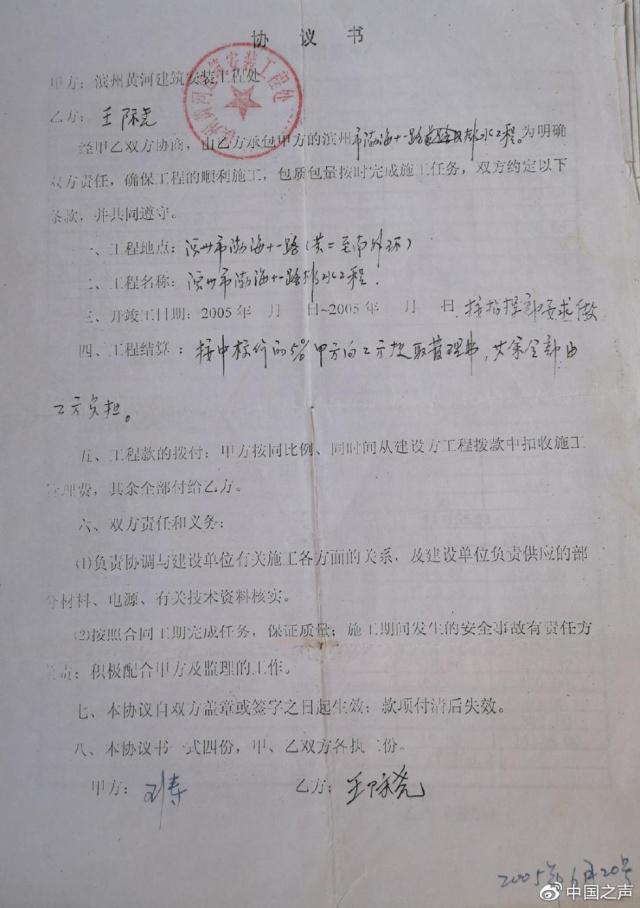 协议书
甲方：滨州黄河建筑安装工程处
乙方：王际尧
经甲乙双方协商，由乙方承包甲方的滨州市渤海十一路排水工程。为明确
双方责任，确保工程的顺利施工，包质包量按时完成施工任务，双方约定以下
条款，并共同遵守。
一、工程地点：滨州市渤海十一路（黄二至南外环）
二、工程名称：滨州市渤海十一路排水工程.
三、开竣工日期：2005年 月 日~2005年 月 日.按指挥部要求做
四、工程结算：按中标价的5%甲方向乙方提取管理费，其余全部由
乙方负担。
五、工程款的拨付：甲方按同比例、同时间从建设方工程拨款中扣收施工
管理费，其余全部付给乙方。
六、双方责任和义务：
⑴负责协调与建设单位有关施工各方面的关系，及建设单位负责供应的部
分材料、电源、有关技术资料核实。
⑵按照合同工期完成任务，保证质量；施工期间发生的安全事故有责任方
负责；积极配合甲方及监理的工作。
七、本协议自双方盖章或签字之日起生效；款项付清后失效。
八、本协议书一式四份，甲、乙双方各执二份。
甲方： 乙方：王际尧
2005年6月20号
@中国之声